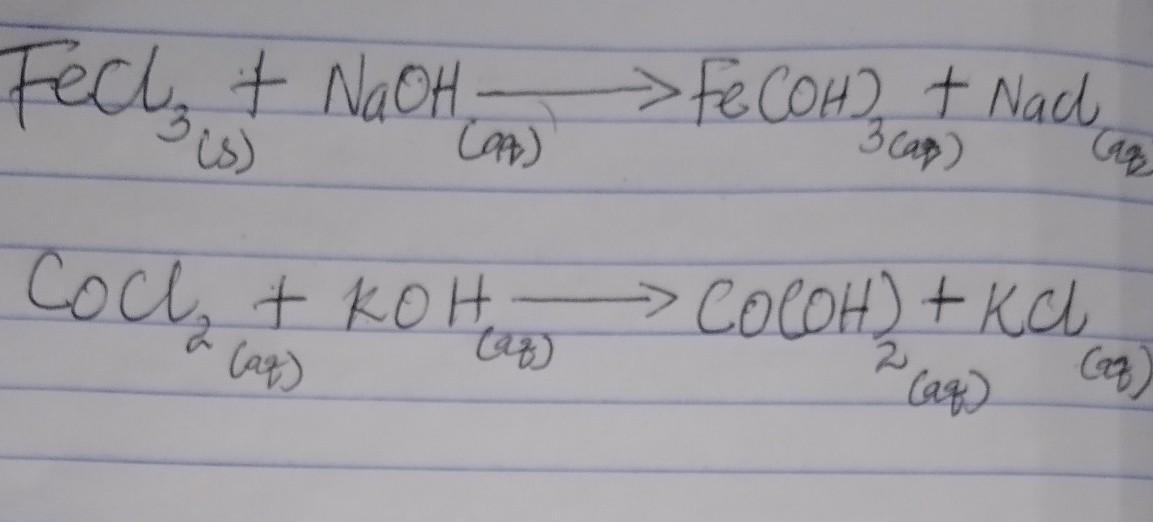 FeCl₃(s) + NaOH(aq) ⟶ Fe(OH)₃(aq) + NaCl(aq
CoCl₂(aq) + KOH(aq) ⟶ CO(OH)₂(aq) + KCl(aq)